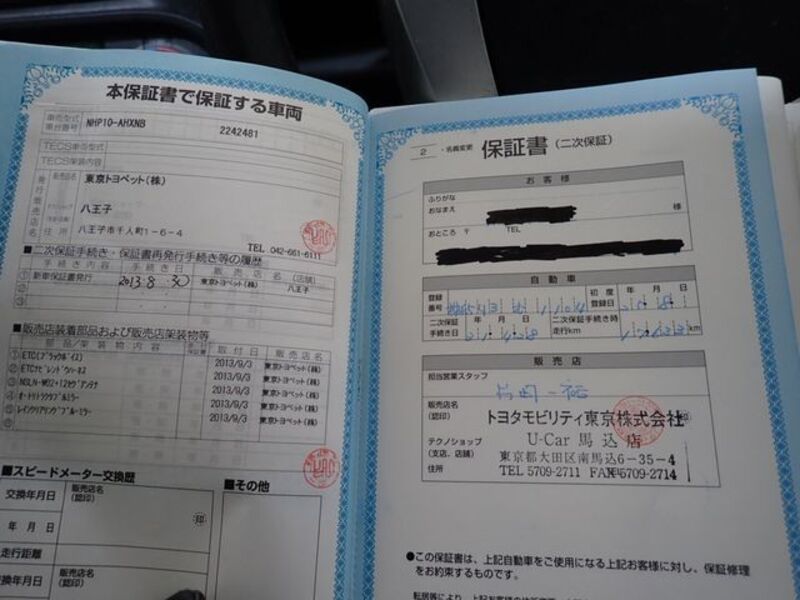 本保証書で保証する車両
車両型式
車台番号
NHP10-AHXNB 2242481
TECS車両型式
TECS架装内容
発行販売店名
販売店名
東京トヨペット(株)
八王子
住所
八王子市千人町1-6-4
TEL.042-661-6111
■二次保証手続き・保証書再発行手続き等の履歴
手続き内容 手続き日 販売店名(店舗)
①新車保証書発行 2013.8.30 東京トヨペット(株)
八王子
②
③
■販売店装着部品および販売店架装物等
部品/架装物内容 取付日 販売店名
①ETC(ブラックボイス) 2013/9/3 東京トヨペット(株)
②ETCナビレンドウハーネス 2013/9/3 東京トヨペット(株)
③NSLN-W62+12セグアンテナ 2013/9/3 東京トヨペット(株)
④オートリトラクタブルミラー 2013/9/3 東京トヨペット(株)
⑤レインクリアリングブルーミラー 2013/9/3 東京トヨペット(株)
⑥
■スピードメーター交換歴
交換年月日
販売店名
(認印)
印
年 月 日
走行距離
交換年月日
販売店名
(認印)
■その他
2 ・名義変更 保証書(二次保証)
お客様
ふりがな
おなまえ 様
おところ 〒 TEL
自動車
登録
番号
初度
登録日
年 月 日
二次保証
手続き日
年 月 日
二次保証手続き時
走行km
km
販売店
担当営業スタッフ
販売店名
(認印)
トヨタモビリティ東京株式会社
印
U-Car 馬込店
テクノショップ
(支店、店舗)
東京都大田区南馬込6-35-4
住所
TEL 5709-2711 FAX 5709-2714
●この保証書は、上記自動車をご使用になる上記お客様に対し、保証修理
をお約束するものです。